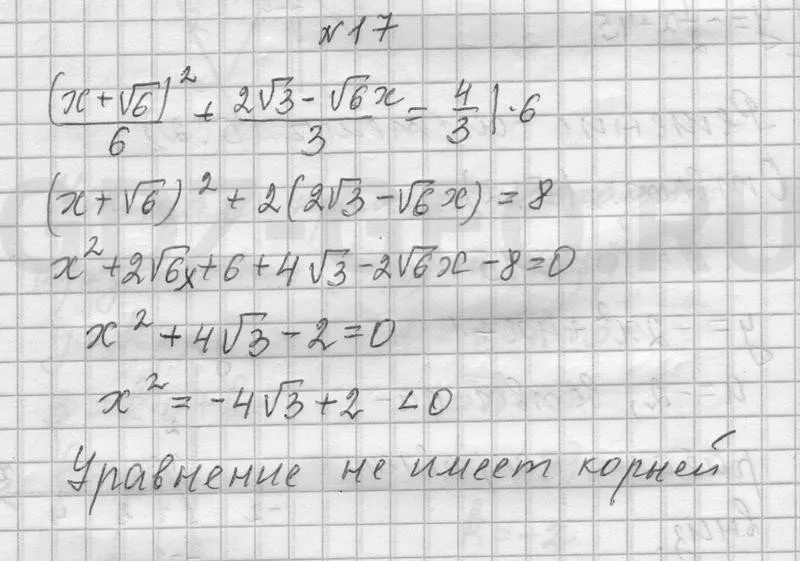 №17
(x+√6)²/6 + (2√3-√6x)/3 = 4/3 |·6
(x+√6)²+2(2√3-√6x)=8
x²+2√6x+6+4√3-2√6x-8=0
x²+4√3-2=0
x²=-4√3+2 <0
Уравнение не имеет корней